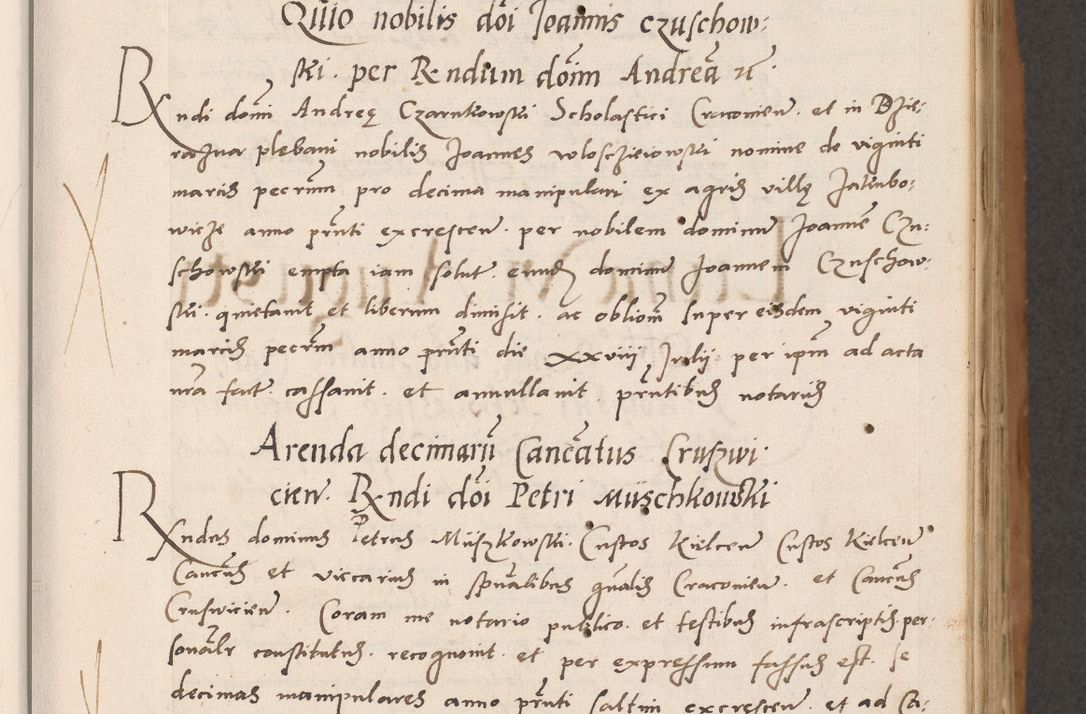 Quio nobilis dōi Joannis Czuschow:
ski. per Rndum dōim Andreā
Rndi domī Andreę Czarnkowski Scholastici Cracovien̄. et in Dzie:
plebani nobilis Joannes nomine de viginti
marcis pecūm pro decima manipulari ex agris villę Jakubo:
wicze anno pn̄ti excrescen̄. per nobilem dominum Joannem Czu:
schowski empta iam solut. eundem dominum Joannem Czuschow:
ski. quietavit et liberum dimisit. ac obliōm super eisdem viginti
marcis pecūm anno pn̄ti die xxviii Julii per ipm̄ ad acta
nr̄a fact. cassavit. et annullavit. pn̄tibus notariis
Arenda decimarū Canc̄atus Cruszwi:
cien̄. Rndi dōi Petri Müschkowski
Rndus dominus Petrus Müszkowski. Custos Kielcen̄
Canc̄us et viccarius in sp̄ualibus gn̄alis Cracovien̄. et Canc̄us
Cruswicien̄. Coram me notario publico. et testibus infrascriptis per:
sonalr̄ constitutus. recognovit. et per expressum fassus est. se
decimas manipulares anno pn̄ti saltim excrescen̄. et ad Ca: